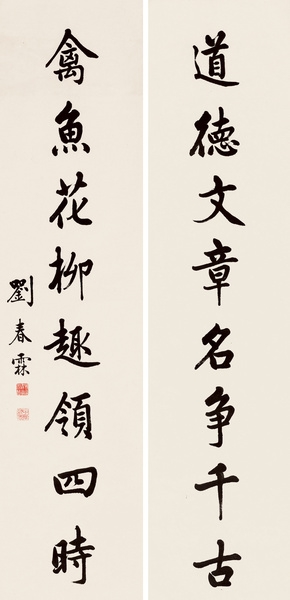 道德文章名争千古
禽魚花柳趣領四時
劉春霖